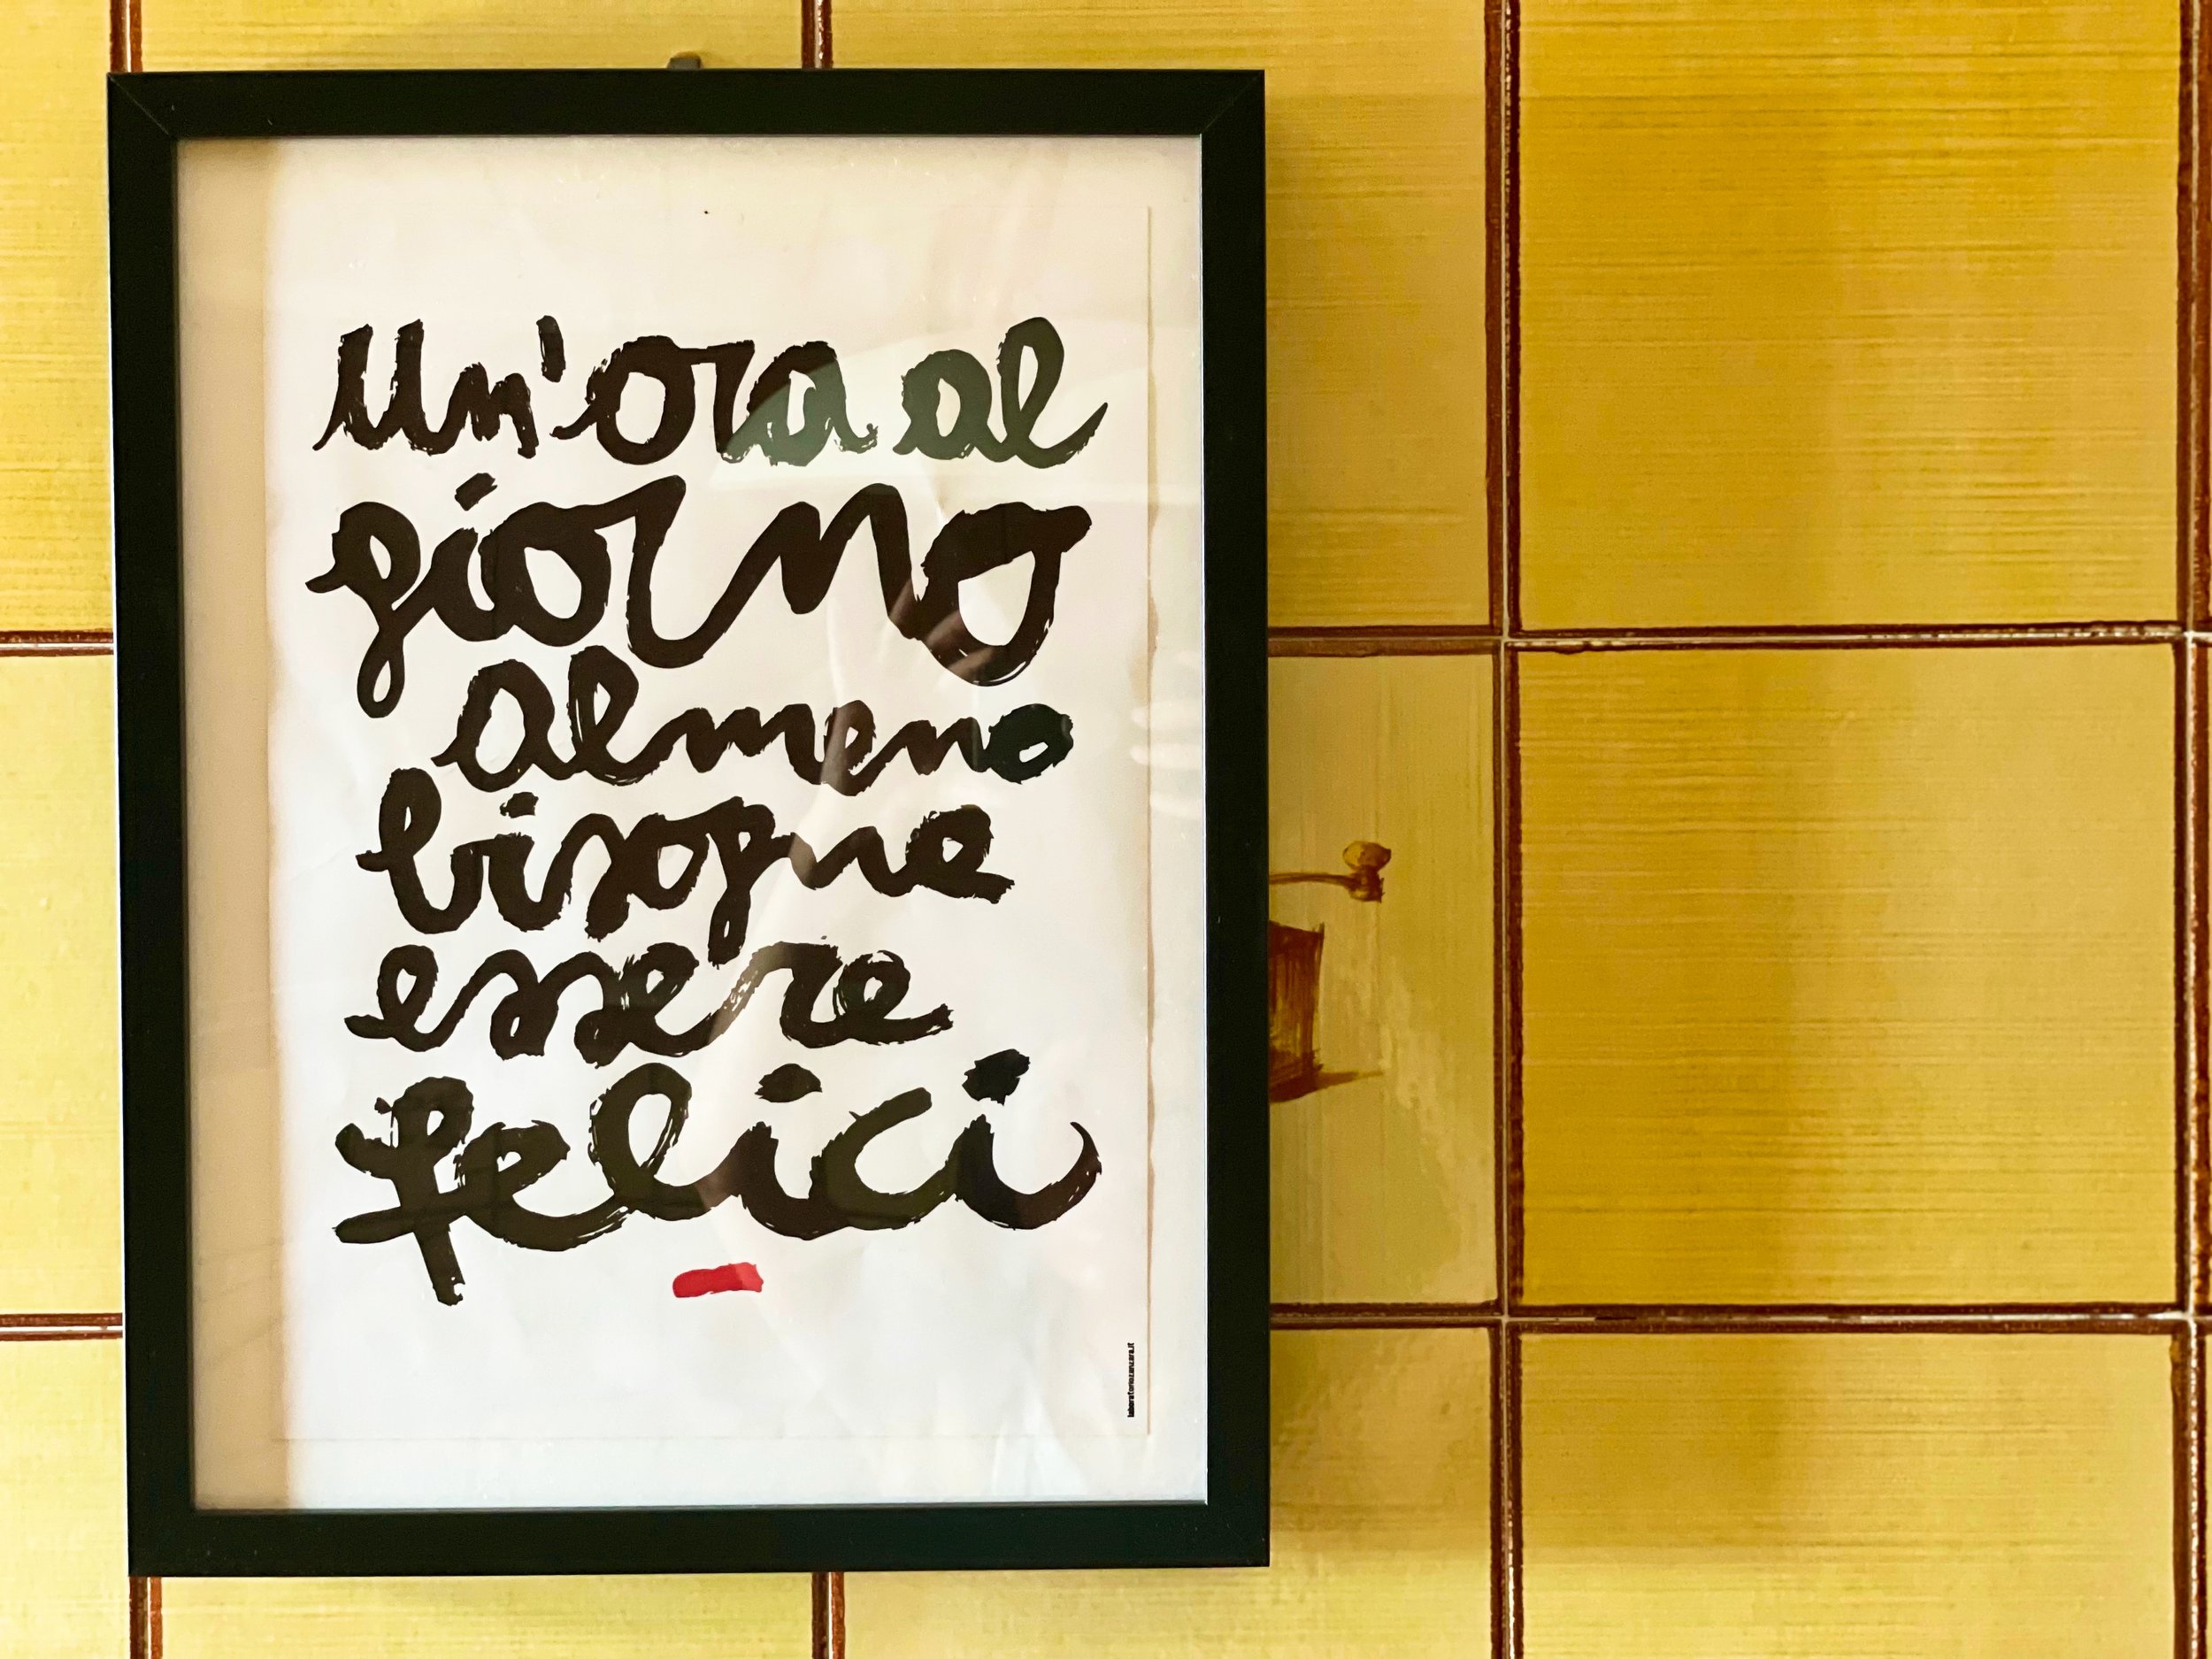 Un'ora al
giorno
almeno
bisogna
essere
felici
laboratoriozanzara.it